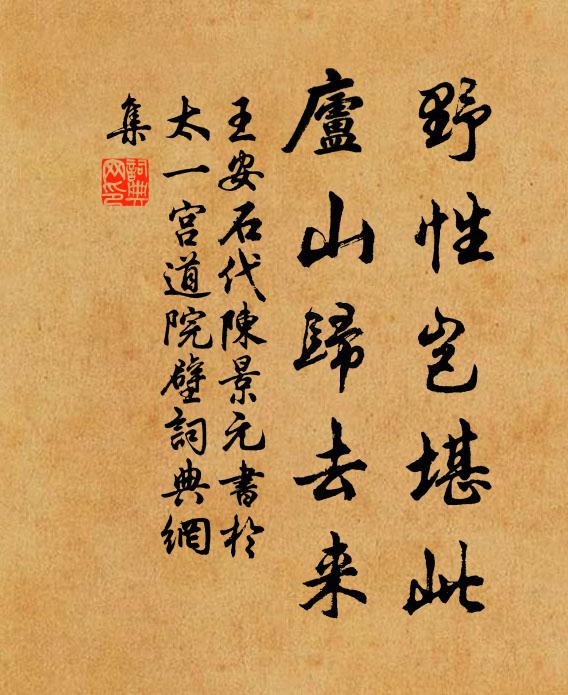 野性岂堪此
廬山歸去来
王安石代陳景元書於
太一宮道院壁詞典網
集
詞典網印